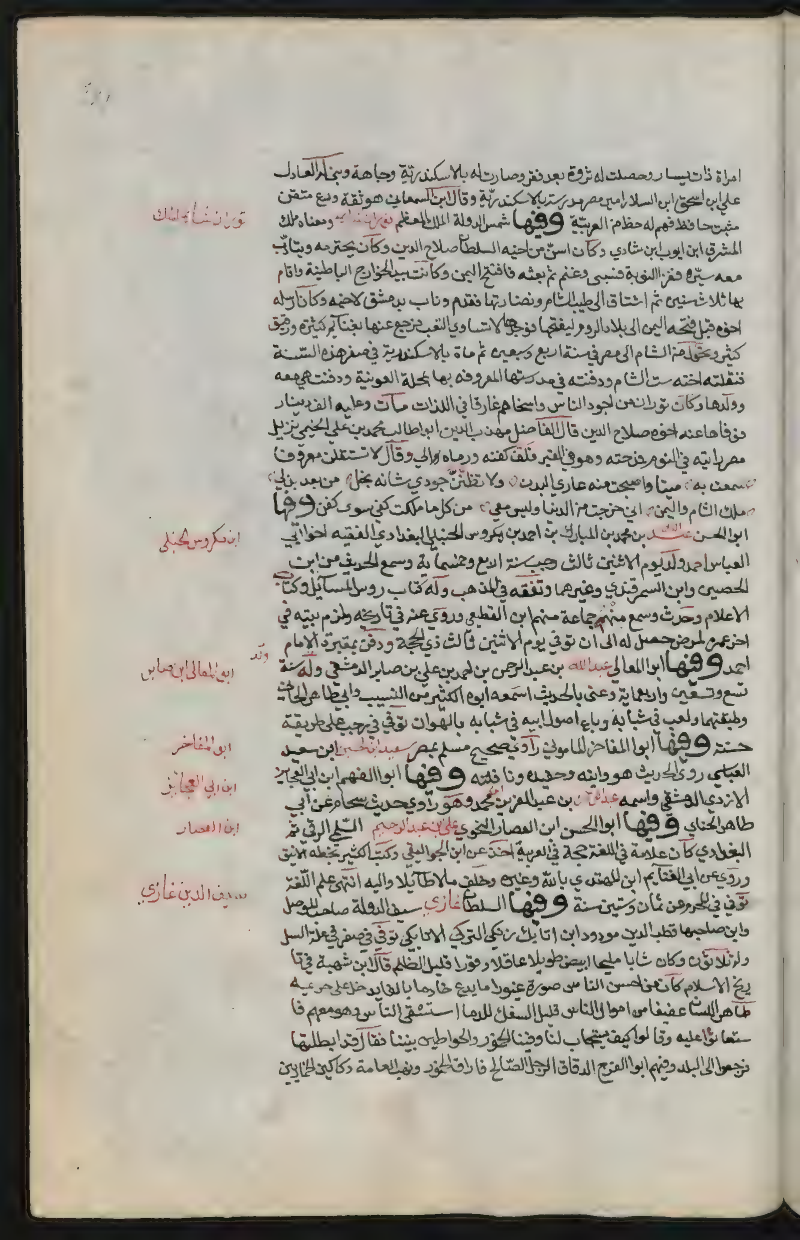 امراة ذات يسار وحصلت له ثروة بعد فقر وصارت له بالاسكندرية وجاهة وبنى له العادل
علي ابن اسحق ابن السلار امير مصر مدرسة بالاسكندرية وقال ابن السمعاني هو ثقة ورع متقن
مثبت حافظ فهم له حظ من العربية وفيها شمس الدولة الملك المعظم توران شاه ومعناه ملك
المشرق ابن ايوب ابن شادي وكان اسن من اخيه السلطان صلاح الدين وكان يحترمه ويتادب
معه سيره فغزا النوبة فسبى وغنم ثم بعثه فافتتح اليمن وكانت بيد الخوارج الباطنية واقام
بها ثلاث سنين ثم اشتاق الى طيب الشام ونضارتها فقدم وناب بدمشق لاخيه وكان ارسله
اخوه قبل فتحه اليمن الى بلاد النوبة ليفتحها فوجدها لا تساوي التعب فرجع عنها بغنائم كثيرة ورقيق
كثير الشام الى مصر في سنة اربع وسبعين ثم مات بالاسكندرية في صفر هذه السنة
فنقلته اخته ست الشام ودفنته في مدرستها المعروفه بها بمحلة العوينة ودفنت هي معه
وولدها وكان توران من اجود الناس واسخاهم غارقا في اللذات مات وعليه الف دينار
فوفاها عنه اخوه صلاح الدين قال الفاضل مهذب الدين ابو اطالب محمد بن علي الخيمي نزيل
مصر رايته في النوم فمدحته وهو في القبر فلف كفنه ورماه الي وقال لا تستقلن معروفا
سمحت به ميتا وامسيت منه عاري البدن ولا تظنن جودي شانه بخل من بعد بذلي
ملك الشام واليمن اني خرجت من الدنيا وليس معي من كل ما ملكت كفي سوى كفن وفيها
ابو الحسن بن محمد بن المبارك بن احمد بن بكروس الحنبلي البغدادي الفقيه اخو ابي
العباس احمد ولد يوم الاثنين ثالث رجب سنة اربع وخمسماية وسمع الحديث من ابن
الحصين وابن السمرقندي وغيرهما وتفقه في المذهب وله كتاب روس المسائل وكتاب
الاعلام وحدث وسمع منهم جماعة منهم ابن القطيعي وروي عنه في تاريخه ولزم بيته في
اخر عمره لمرض حصل له الى ان توفي يوم الاثنين ثالث ذي الحجة ودفن بمقبرة الامام
احمد وفيها ابو المعالي عبد الله بن عبد الرحمن بن احمد بن علي بن صابر الدمشقي وله سنة
تسع وتسعين واربعماية وعني بالحديث اسمعه ابوه الكثير من النسيب وابي طاهر الحنائي
وطبقتهما ولعب في شبابه وباع اصول ابيه في شبابه بالهوان توفي في رجب على طريقة
حسنة وفيها ابو المفاخر الماموني راوي صحيح مسلم بمصر سعيد بن الحسين ابن سعيد
العباسي روى الحديث هو وابنه وحفيده ونافلته وفيها ابو الفهم ابن ابي العجايز
الازدي الدمشقي واسمه عبد الرحمن بن عبد العزيز بن محمد وهو راوي حديث سختام عن ابي
طاهر الحنائي وفيها ابو الحسن ابن العصار النحوي علي بن عبد الرحيم السلمي الرقي ثم
البغدادي كان علامة في اللغة حجة في العربية اخذ عن ابن الجواليقي وكتب الكثير بخطه الانيق
وروي عن ابي الغنائم ابن المهتدي بالله وغيره وخلف مالا طائلا واليه انتهى علم اللغة
توفي في المحرم عن ثمان وستين سنة وفيها السلطان غازي سيف الدولة صاحب الموصل
وابن صاحبها قطب الدين مودود ابن اتابك زنكي التركي الاتابكي توفي في صفر في علة السل
وله ثلاثون وكان شابا مليحا ابيض طويلا عاقلا وقورا قليل الظلم قال ابن شهبة في تا
ريخ الاسلام كان من احسن الناس صورة غيورا ما يدع خادما بالغا يدخل على حرمه
طاهر اللسان عفيفا من اموال الناس قليل السفك للدما استسقى الناس وهو معهم فا
ستغاثوا عليه وقالوا كيف يستجاب لنا وفينا الخمور والخواطي بيننا فقال قد ابطلتها
فرجعوا الى البلد وفيهم ابو الفرج الدقاق الرجل الصالح فاراق الخمور ونهب العامة دكاكين الخمارين
توران شاه الملك
ابن بكروس الحنبلي
ابو المعالي ابن صابر
ولد
ابو المفاخر
ابن ابي العجايز
ابن العصار
سيف الدين غازي